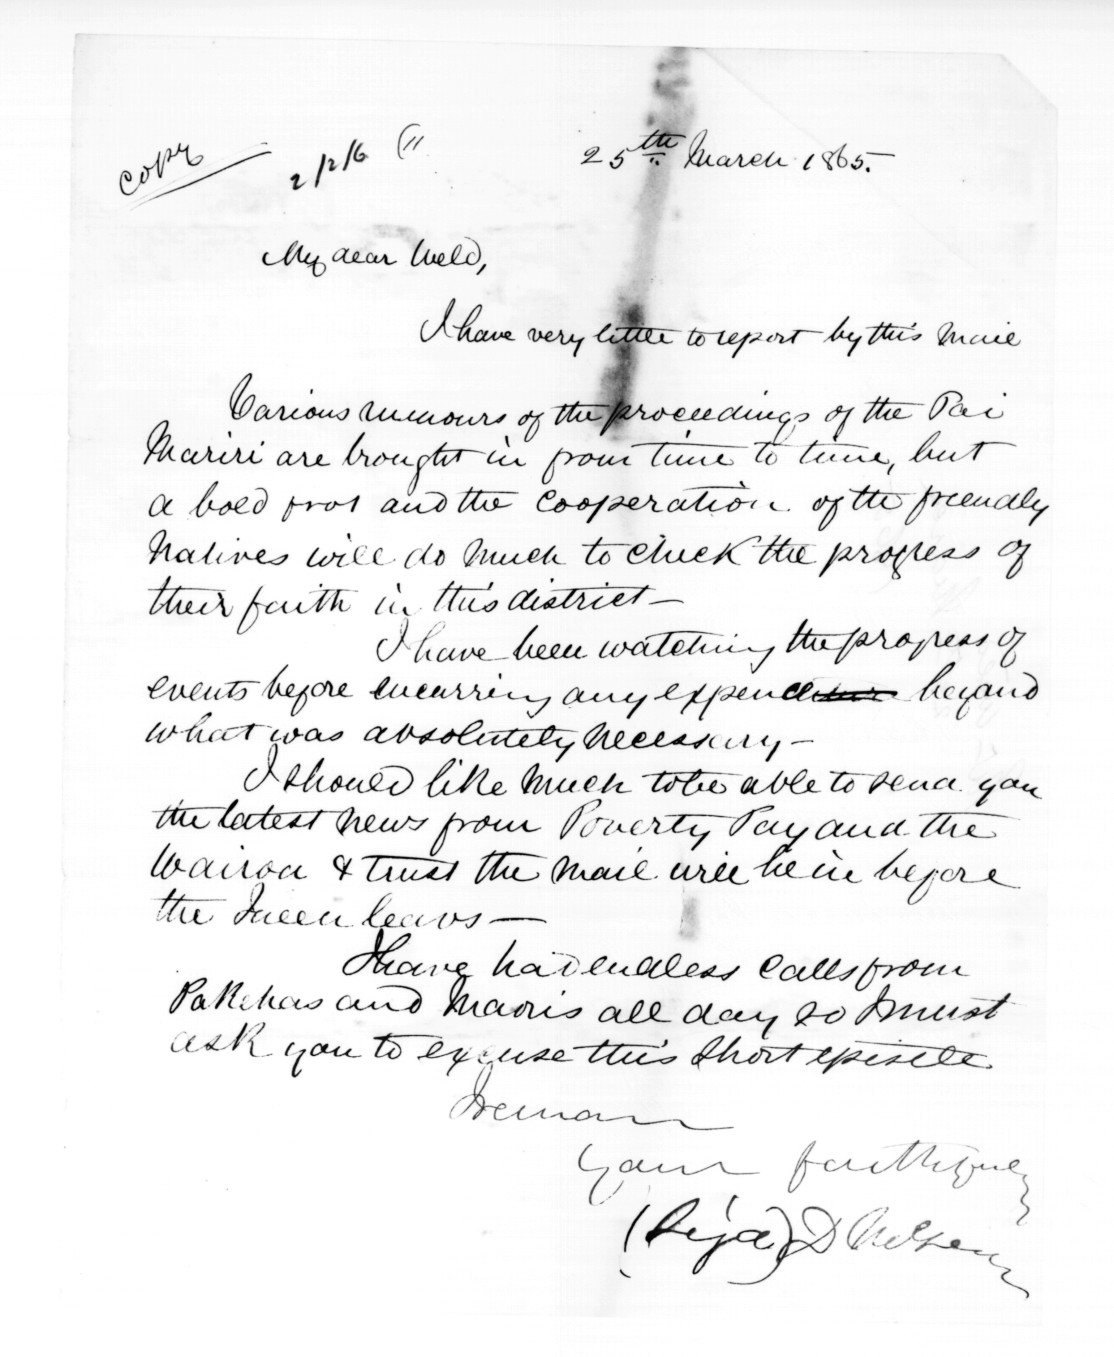 Copy
2/2/6
25th March 1865.
My dear Weld,
I have very little to report by this Mail
Various rumours of the proceedings of the Pai
Mariri are brought in from time to time, but
a bold and the cooperation of the friendly
Natives will do much to check the progress of
their faith in this district—
I have been watching the progress of
events before incurring any expence beyond
what was absolutely necessary—
I should like much to be able to send you
the latest news from Poverty Bay and the
Wairoa & trust the Mail will be in before
the Queen leavs—
I have had endless calls from
Pakehas and Maoris all day so I must
ask you to excuse this short epistle
I remain
Yours faithfully
(Sigd) D